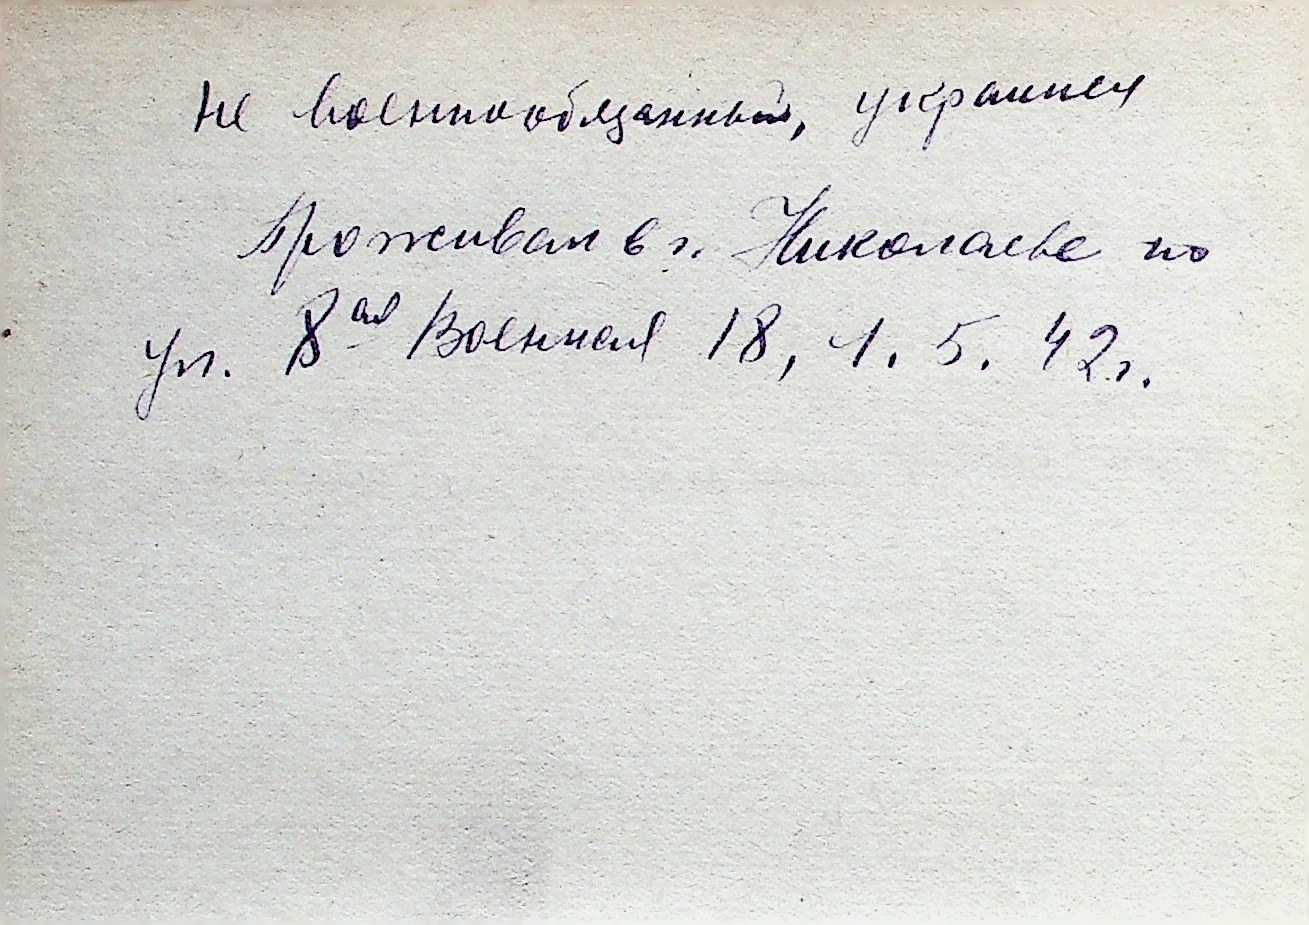 не военнообязанный, украинец
Проживал в г. Николаеве по
ул. 8ая Военная 18, 1. 5. 42г.